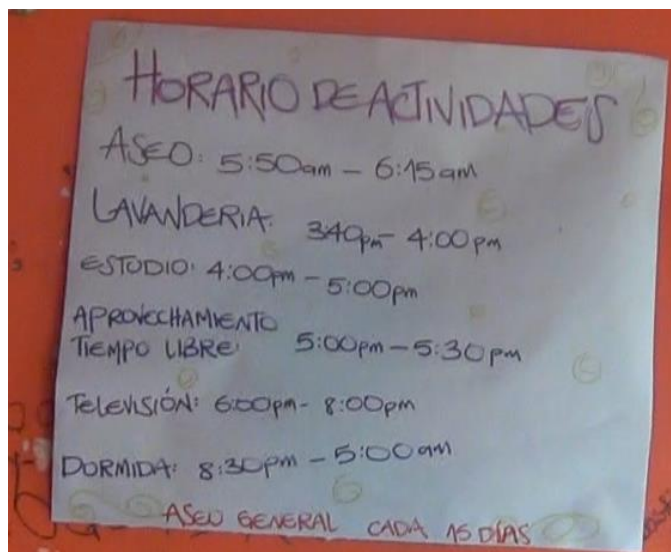 HORARIO DE ACTIVIDADES
ASEO: 5:50am - 6:15am
LAVANDERIA: 340pm - 4:00pm
ESTUDIO: 4:00pm - 5:00pm
APROVECHAMIENTO
TIEMPO LIBRE: 5:00pm - 5:30pm
TELEVISIÓN: 6:00pm - 8:00pm
DORMIDA: 8:30pm - 5:00am
ASEO GENERAL CADA 15 DÍAS